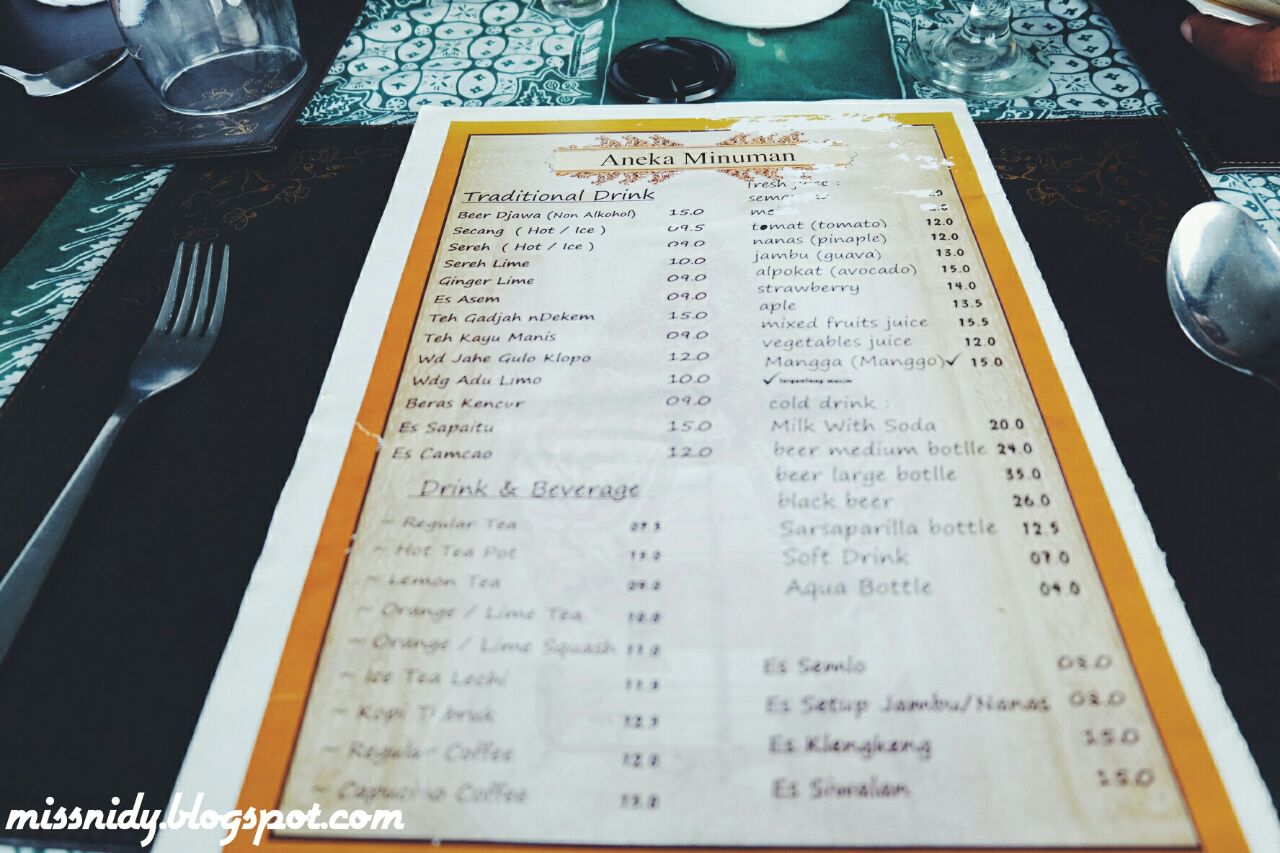 Aneka Minuman
Traditional Drink
Beer Djawa (Non Alkohol) 15.0
Secang ( Hot / Ice ) 09.5
Sereh ( Hot / Ice ) 09.0
Sereh Lime 10.0
Ginger Lime 09.0
Es Asem 09.0
Teh Gadjah nDekem 15.0
Teh Kayu Manis 09.0
Wd Jahe Gulo Klopo 12.0
Wdg Adu Limo 10.0
Beras Kencur 09.0
Es Sapaitu 15.0
Es Camcao 12.0
Drink & Beverage
~ Regular Tea 07.5
~ Hot Tea Pot
~ Lemon Tea 09.0
~ Orange / Lime Tea 10.0
~ Orange / Lime Squash 11.0
~ Ize Tea Lechi
~ Kopi Tubruk
~ Regular Coffee 12.0
~ Capucino Coffee
fresh juice :
tomat (tomato) 12.0
nanas (pinaple) 12.0
jambu (guava) 13.0
alpokat (avocado) 15.0
strawberry 14.0
aple 13.5
mixed fruits juice 15.5
vegetables juice 12.0
Mangga (Manggo)✓ 15.0
✓
cold drink :
Milk With Soda 20.0
beer medium botlle 24.0
beer large botlle 35.0
black beer 26.0
Sarsaparilla bottle 12.5
Soft Drink 07.0
Aqua Bottle 04.0
Es Semlo 08.0
Es Setup Jambu/Nanas 08.0
Es Klengkeng 15.0
Es Siwalan 15.0
missnidy.blogspot.com